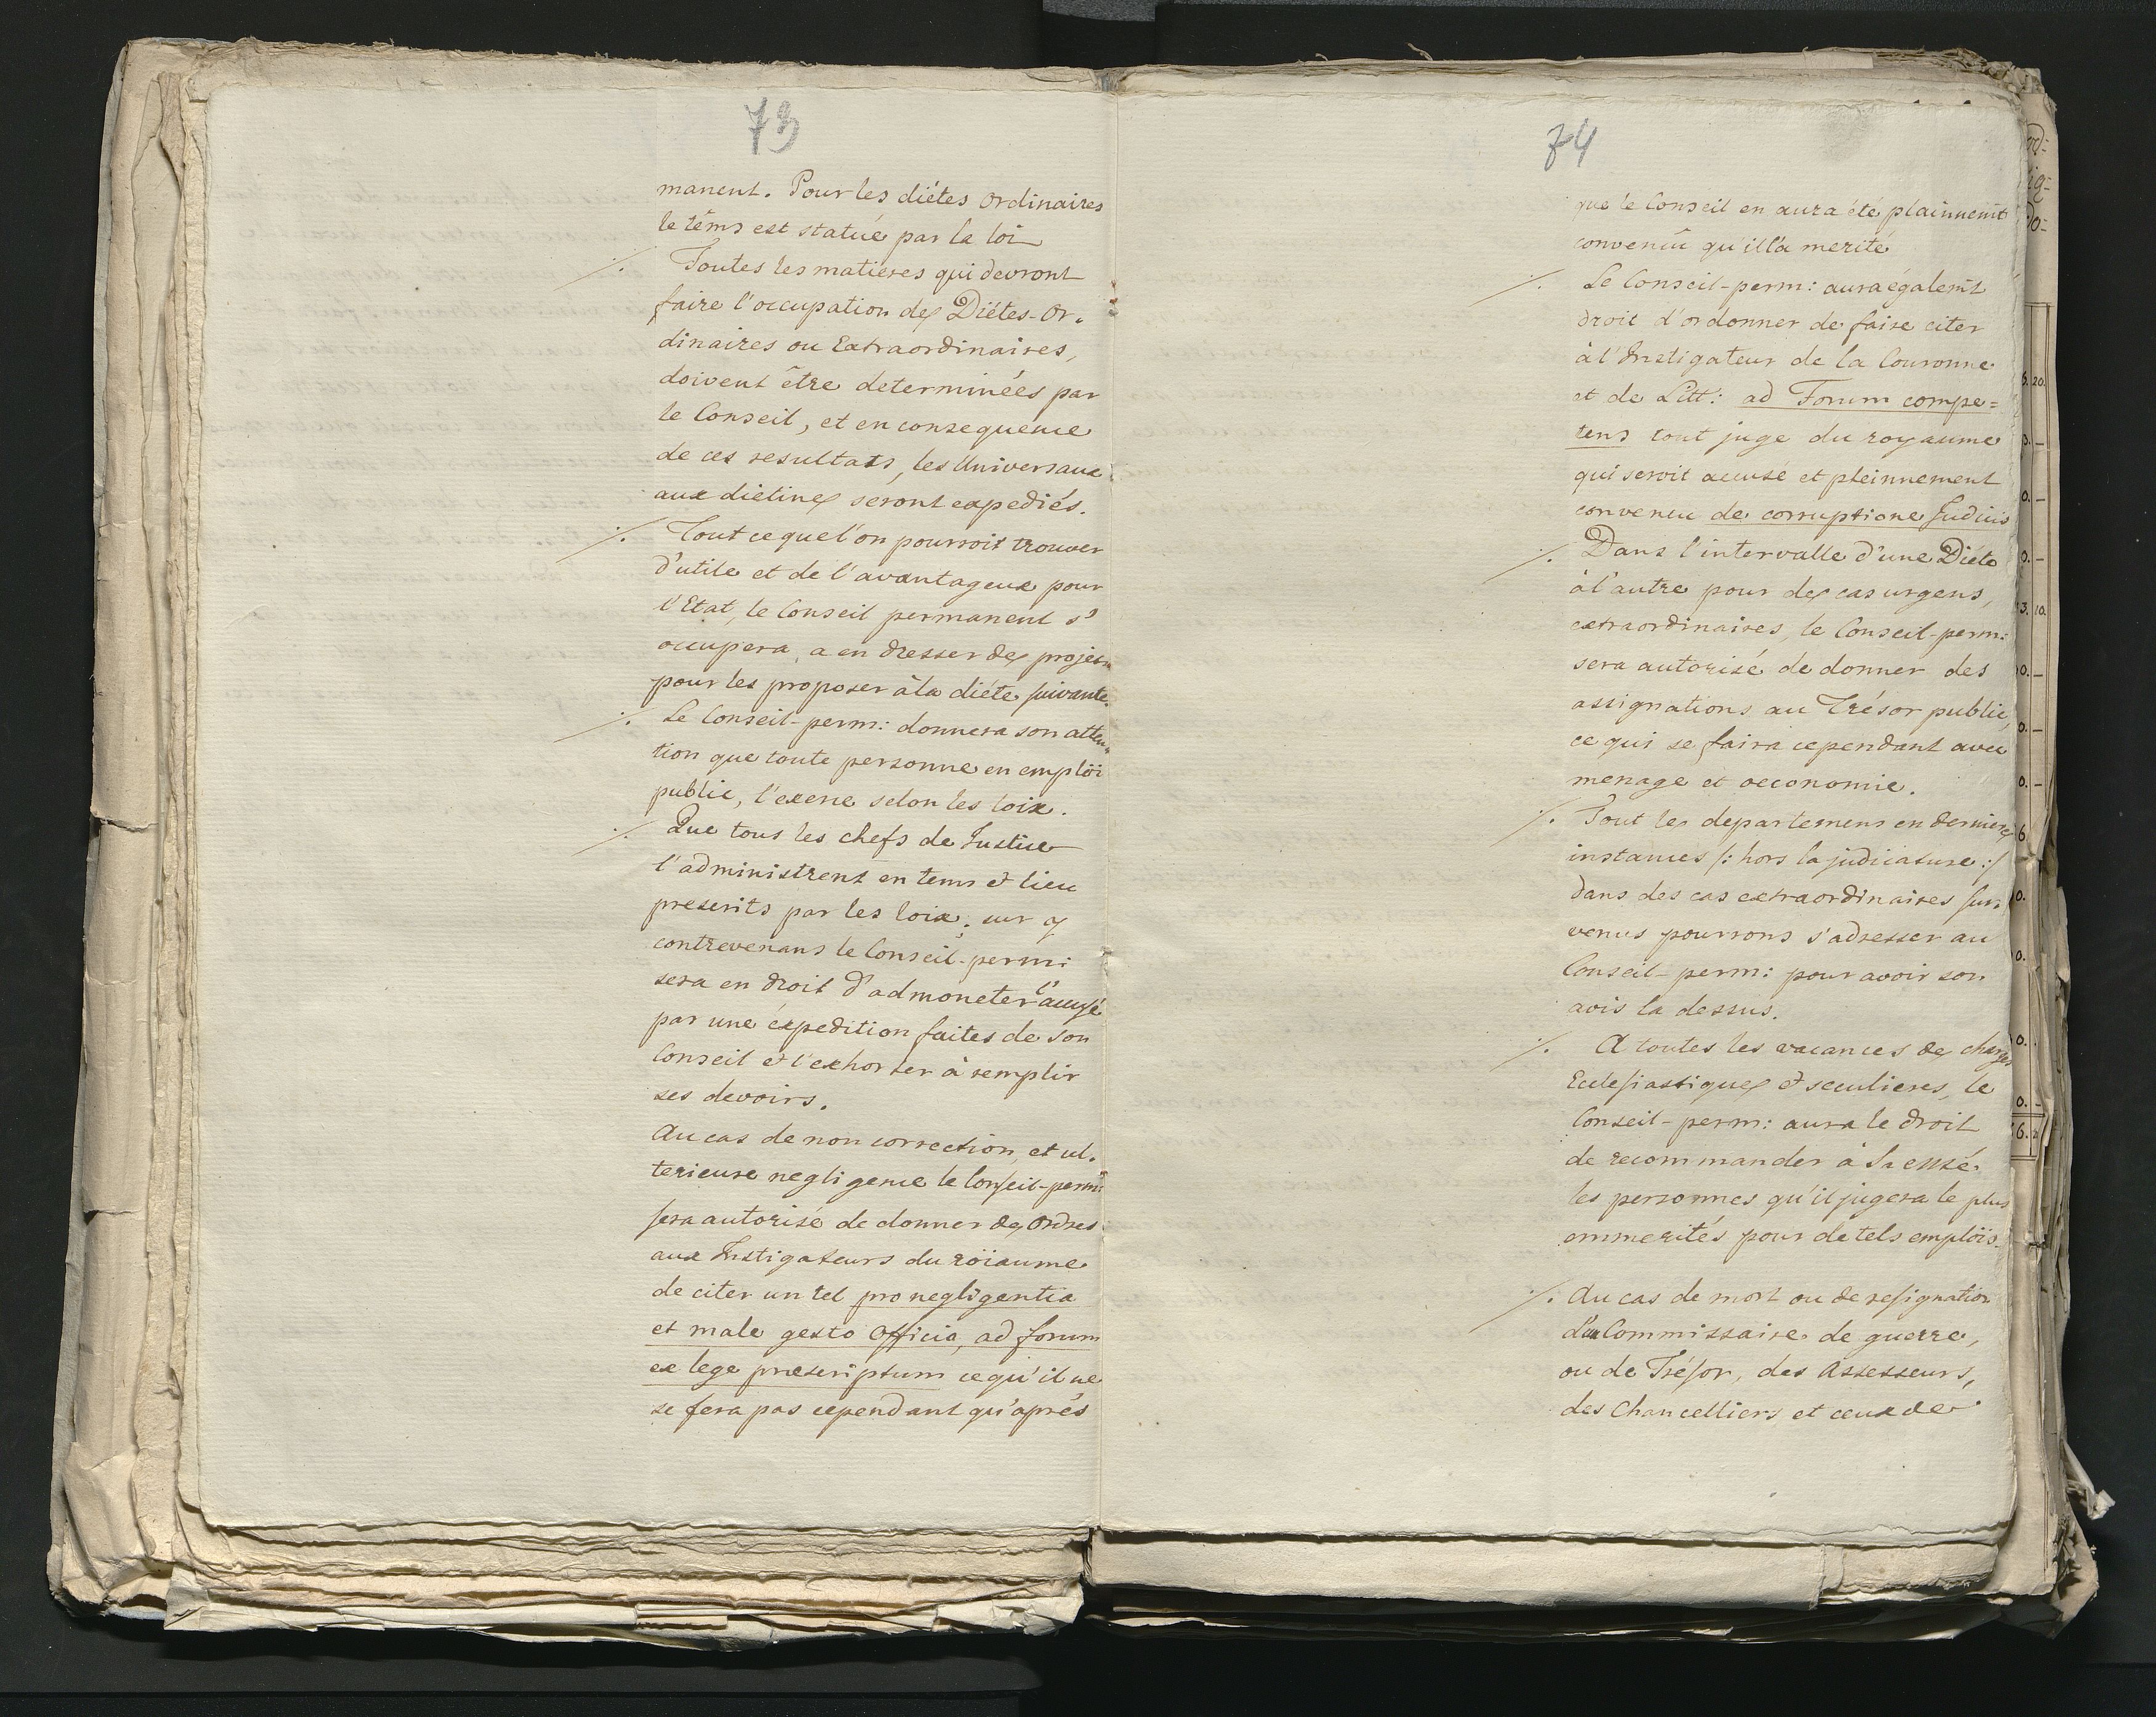 73
manent. Pour les diétes ordinaires
le têms est statué par la loi
⁒ Toutes les matieres qui devront
faire l'occupation des Diétes-Or-
dinaires ou Extraordinaires,
doivent être determinées par
le Conseil, et en consequence
de ces resultats, les Universaux
aux diétines seront expediés.
⁒ Tout ce quel'on pourroit trouver
d'utile et de l'avantageux pour
l'Etat, le Conseil permanent s'
occupera, a en dresser des projets
pour les proposer à la diéte suivante.
⁒ Le Conseil-perm: donnera son atten-
tion que toute personne en emplöi
public, l'exerce selon les loix.
⁒ Que tous les chefs de Justice
l'administrent en tems et lieu
prescrits par les loix; sur y
contrevenans le Conseil-perm:
sera en droit d'admoneter l'accusé
par une expedition faites de son
Conseil et l'exhorter à remplir
ses devoirs.
Au cas de non correction, et ul-
terieure negligence le Conseil-perm:
sera autorisé de donner des Ordres
aux Instigateurs du röiaume
de citer un tel pro negligentia
et male gesto Officio, ad forum
ex lege præscriptum ce qu'il ne
se fera pas cependant qu'aprés
74
que le Conseil en aura été plainnemt
convenû qu'ill'a merité
⁒ Le Conseil-perm: aura égalemt
droit d'ordonner de faire citer
à l'Instigateur de la Couronne
et de Litt: ad Forum compe=
tens tout juge du royaume
qui seroit accusé et pleinnement
convenu de corruptione Judicis
⁒ Dans l'intervalle d'une Diéte
à l'autre pour des cas urgens,
extraordinaires, le Conseil-perm:
sera autorisé de donner des
assignations au Trésor public,
ce qui se faira cependant avec
menage et oeconomie.
⁒ Tout les departemens en dernieres
instances /: hors la judicature :/
dans des cas extraordinaires sur-
venus pourrons s'adresser au
Conseil-perm: pour avoir son
avis la dessus.
⁒ A toutes les vacances des charges
Eclesiastiques et seculieres, le
Conseil-perm: aura le droit
de recommander à Sa Mté
les personnes qu'il jugera le plus
emmerités pour de tels emplöis.
⁒ Au cas de mort ou de resignation
du Commissaire de guerre,
ou de Trésor, des Assesseurs,
des Chancelliers et ceux de